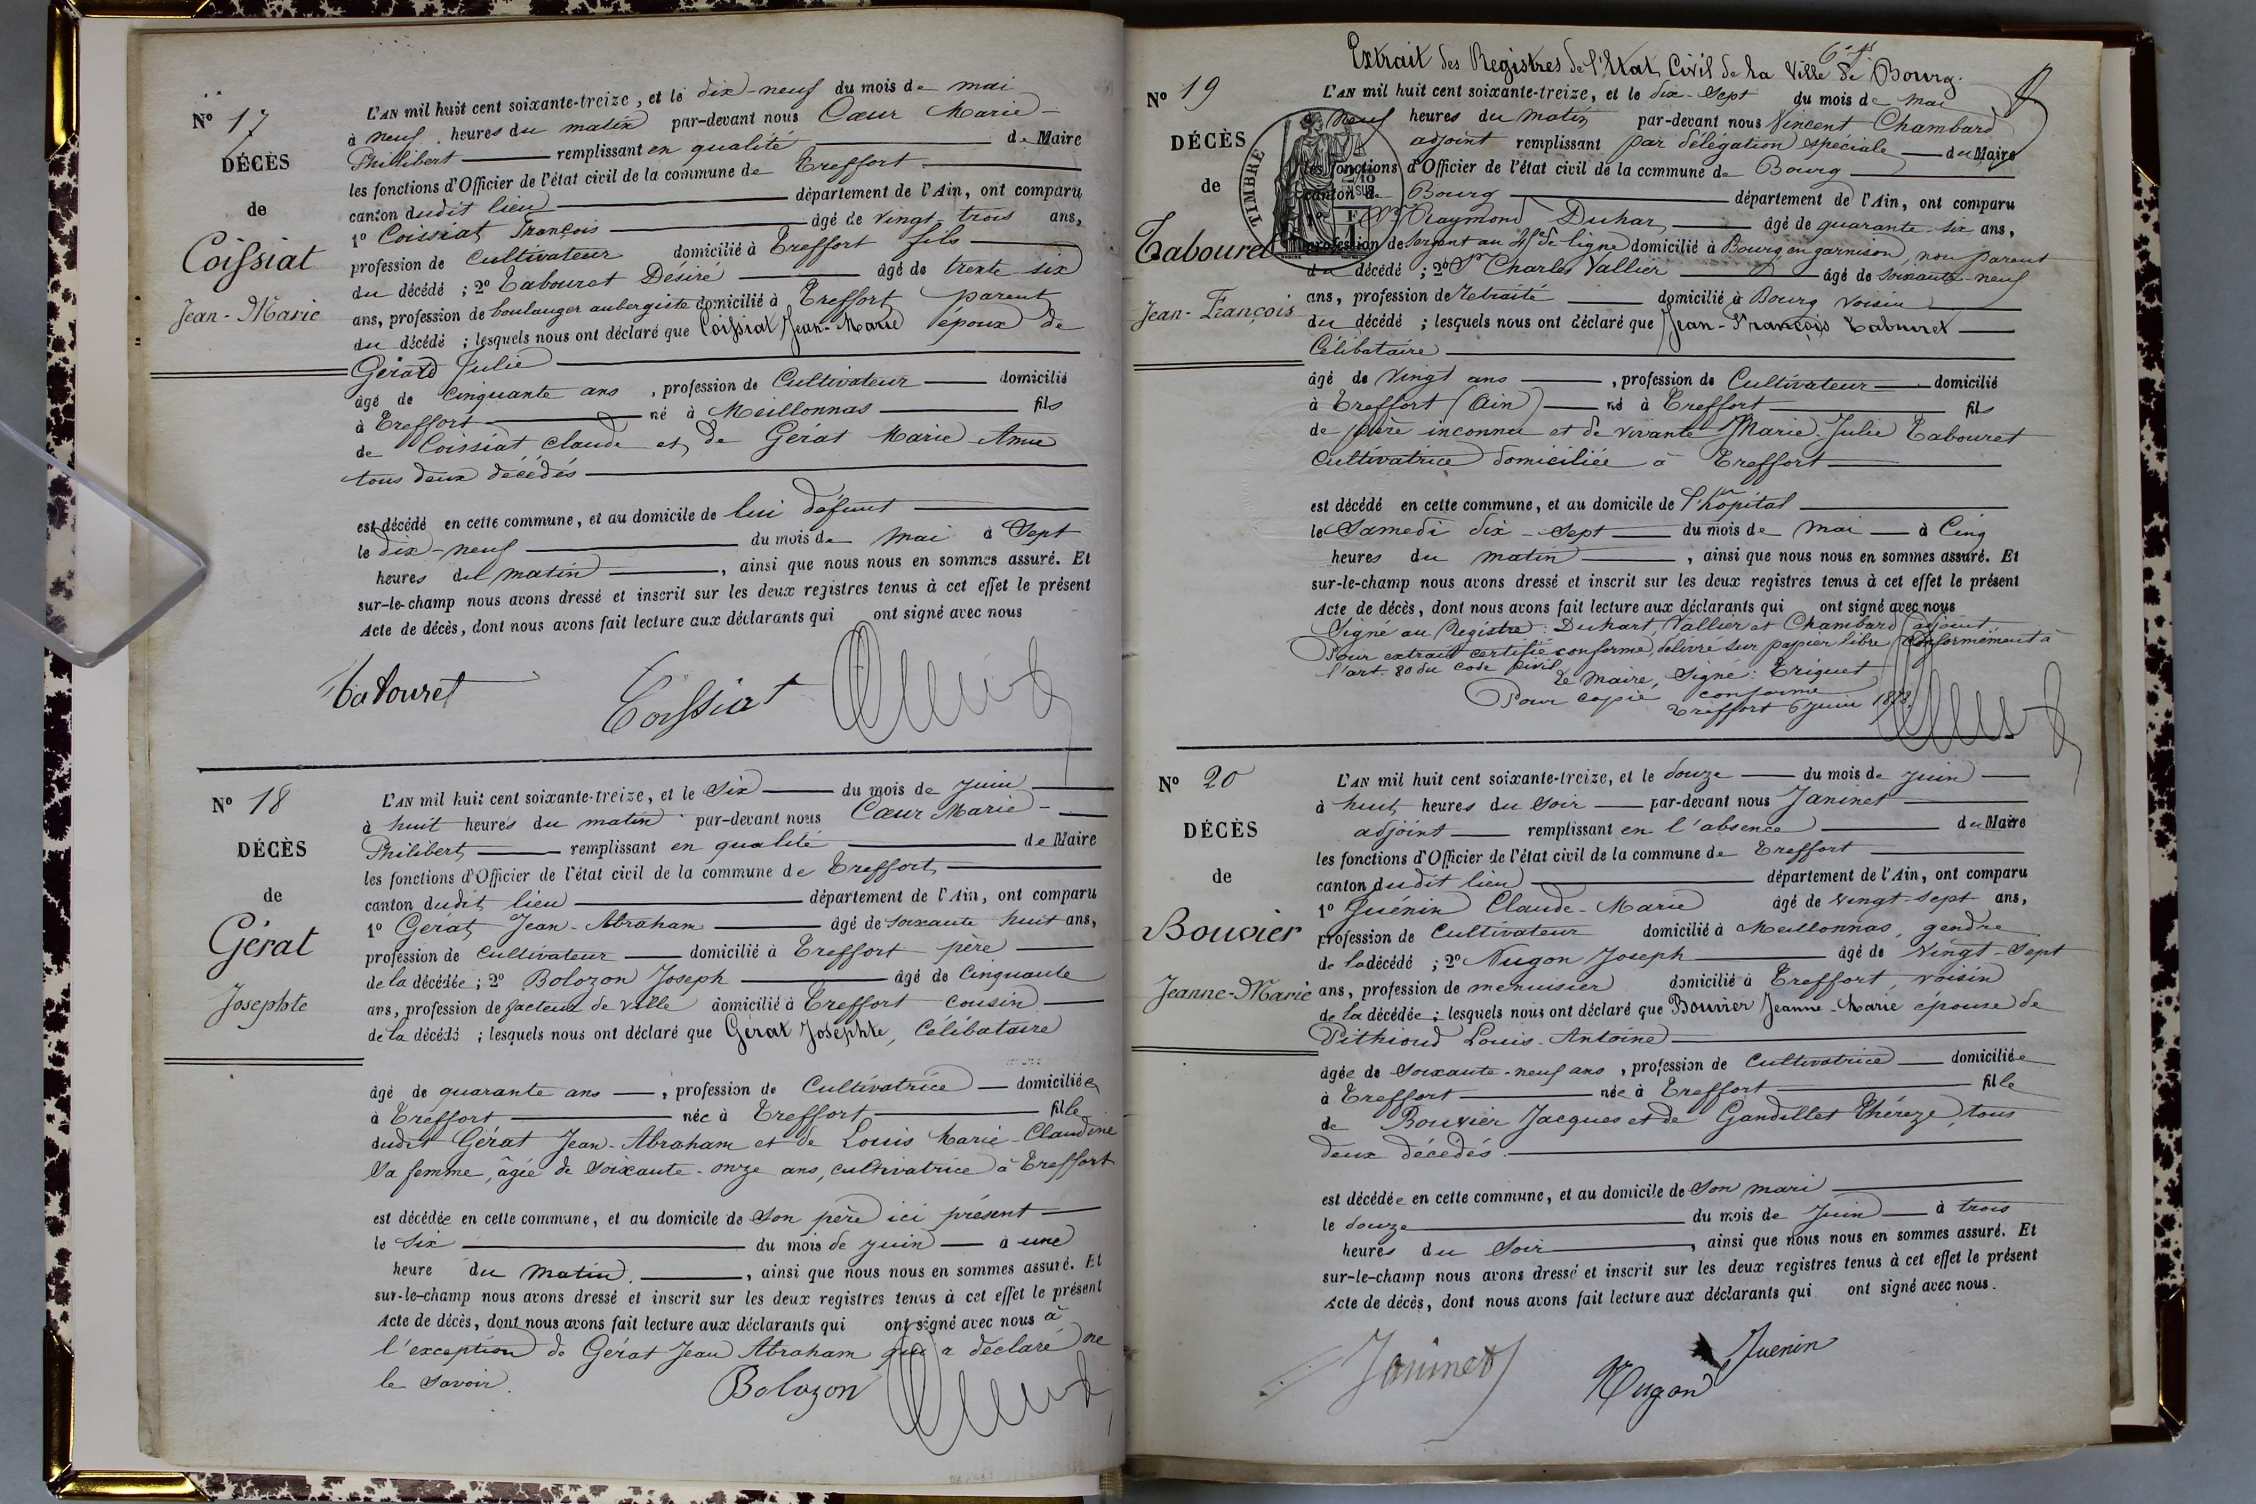 Nº 17
DÉCÈS
de
Coissiat
Jean-Marie
L'AN mil huit cent soixante-treize, et le dix-neuf du mois de mai
à neuf heures du matin par-devant nous Cœur Marie-
Philibert remplissant en qualité de Maire
les fonctions d'Officier de l'état civil de la commune de Treffort
canton dudit lieu département de l'Ain, ont comparu
1º Coissiat François âgé de vingt-trois ans,
profession de Cultivateur domicilié à Treffort fils
du décédé ; 2º Tabouret Désiré âgé de trente six
ans, profession de boulanger aubergiste domicilié à Treffort parent
du décédé ; lesquels nous ont déclaré que Coissiat Jean-Marie époux de
Gérard Julie
âgé de cinquante ans, profession de Cultivateur domicilié
à Treffort né à Meillonnas fils
de Coissiat Claude et de Gérat Marie-Anne
tous deux décédés
est décédé en cette commune, et au domicile de lui défunt
le dix-neuf du mois de mai à Sept
heures du matin, ainsi que nous nous en sommes assuré. Et
sur-le-champ nous avons dressé et inscrit sur les deux registres tenus à cet effet le présent
Acte de décès, dont nous avons fait lecture aux déclarants qui ont signé avec nous
Tabouret Coissiat
Nº 18
DÉCÈS
de
Gérat
Josephte
L'AN mil huit cent soixante-treize, et le Six du mois de Juin
à huit heures du matin par-devant nous Cœur Marie-
Philibert remplissant en qualité de Maire
les fonctions d'Officier de l'état civil de la commune de Treffort
canton dudit lieu département de l'Ain, ont comparu
1º Gérat Jean-Abraham âgé de soixante huit ans,
profession de Cultivateur domicilié à Treffort père
de la décédée ; 2º Bolozon Joseph âgé de Cinquante
ans, profession de facteur de ville domicilié à Treffort cousin
de la décédé ; lesquels nous ont déclaré que Gérat Josephte, Célibataire
âgé de quarante ans, profession de Cultivatrice domiciliée
à Treffort née à Treffort fille
dudit Gérat Jean-Abraham et de Louis Marie-Claudine
Sa femme, âgée de soixante-onze ans, cultivatrice à Treffort
est décédée en cette commune, et au domicile de Son père ici présent
le Six du mois de Juin à une
heure du matin, ainsi que nous nous en sommes assuré. Et
sur-le-champ nous avons dressé et inscrit sur les deux registres tenus à cet effet le présent
Acte de décès, dont nous avons fait lecture aux déclarants qui ont signé avec nous à
l'exception de Gérat Jean Abraham qui a déclaré ne
le savoir.
Bolozon
Extrait des Registres de l'Etat Civil de la Ville de Bourg.
Nº 19
DÉCÈS
de
Tabouret
Jean-François
TIMBRE
L'AN mil huit cent soixante-treize, et le dix-Sept du mois de Mai
Neuf heures du matin par-devant nous Vincent Chambard
adjoint remplissant par délégation spéciale du Maire
les fonctions d'Officier de l'état civil de la commune de Bourg
canton de Bourg département de l'Ain, ont comparu
Raymond Duhar âgé de quarante-six ans,
profession de Sergent au de ligne domicilié à Bourg en garnison, non parent
du décédé ; 2º Sr Charles Vallier âgé de soixante-neuf
ans, profession de Retraité domicilié à Bourg voisin
du décédé ; lesquels nous ont déclaré que Jean-François Tabouret
Célibataire
âgé de Vingt ans, profession de Cultivateur domicilié
à Treffort (Ain) né à Treffort fils
de père inconnu et de vivante Marie-Julie Tabouret
Cultivatrice domiciliée à Treffort
est décédé en cette commune, et au domicile de l'hôpital
le Samedi dix-Sept du mois de mai à Cinq
heures du matin, ainsi que nous nous en sommes assuré. Et
sur-le-champ nous avons dressé et inscrit sur les deux registres tenus à cet effet le présent
Acte de décès, dont nous avons fait lecture aux déclarants qui ont signé avec nous
Signé au Registre : Duhart, Vallier et Chambard adjoint.
Pour extrait certifié conforme, délivré sur papier libre conformément à
l'art. 80 du Code Civil
Le Maire, Signé : Triquet
Pour copie conforme
Treffort 6 juin 1873.
Nº 20
DÉCÈS
de
Bouvier
Jeanne-Marie
L'AN mil huit cent soixante-treize, et le douze du mois de Juin
à huit heures du Soir par-devant nous Janinet
adjoint remplissant en l'absence du Maire
les fonctions d'Officier de l'état civil de la commune de Treffort
canton dudit lieu département de l'Ain, ont comparu
1º Juénin Claude-Marie âgé de vingt-sept ans,
profession de Cultivateur domicilié à Meillonnas, gendre
de la décédé ; 2º Nugon Joseph âgé de Vingt-Sept
ans, profession de menuisier domicilié à Treffort, voisin
de la décédée ; lesquels nous ont déclaré que Bouvier Jeanne-Marie épouse de
Pithioud Louis-Antoine
âgée de soixante-neuf ans, profession de Cultivatrice domiciliée
à Treffort née à Treffort fille
de Bouvier Jacques et de Gandillet Thérèze, tous
deux décédés.
est décédée en cette commune, et au domicile de Son mari
le douze du mois de Juin à trois
heures du Soir, ainsi que nous nous en sommes assuré. Et
sur-le-champ nous avons dressé et inscrit sur les deux registres tenus à cet effet le présent
Acte de décès, dont nous avons fait lecture aux déclarants qui ont signé avec nous.
Janinet Nugon Juenin